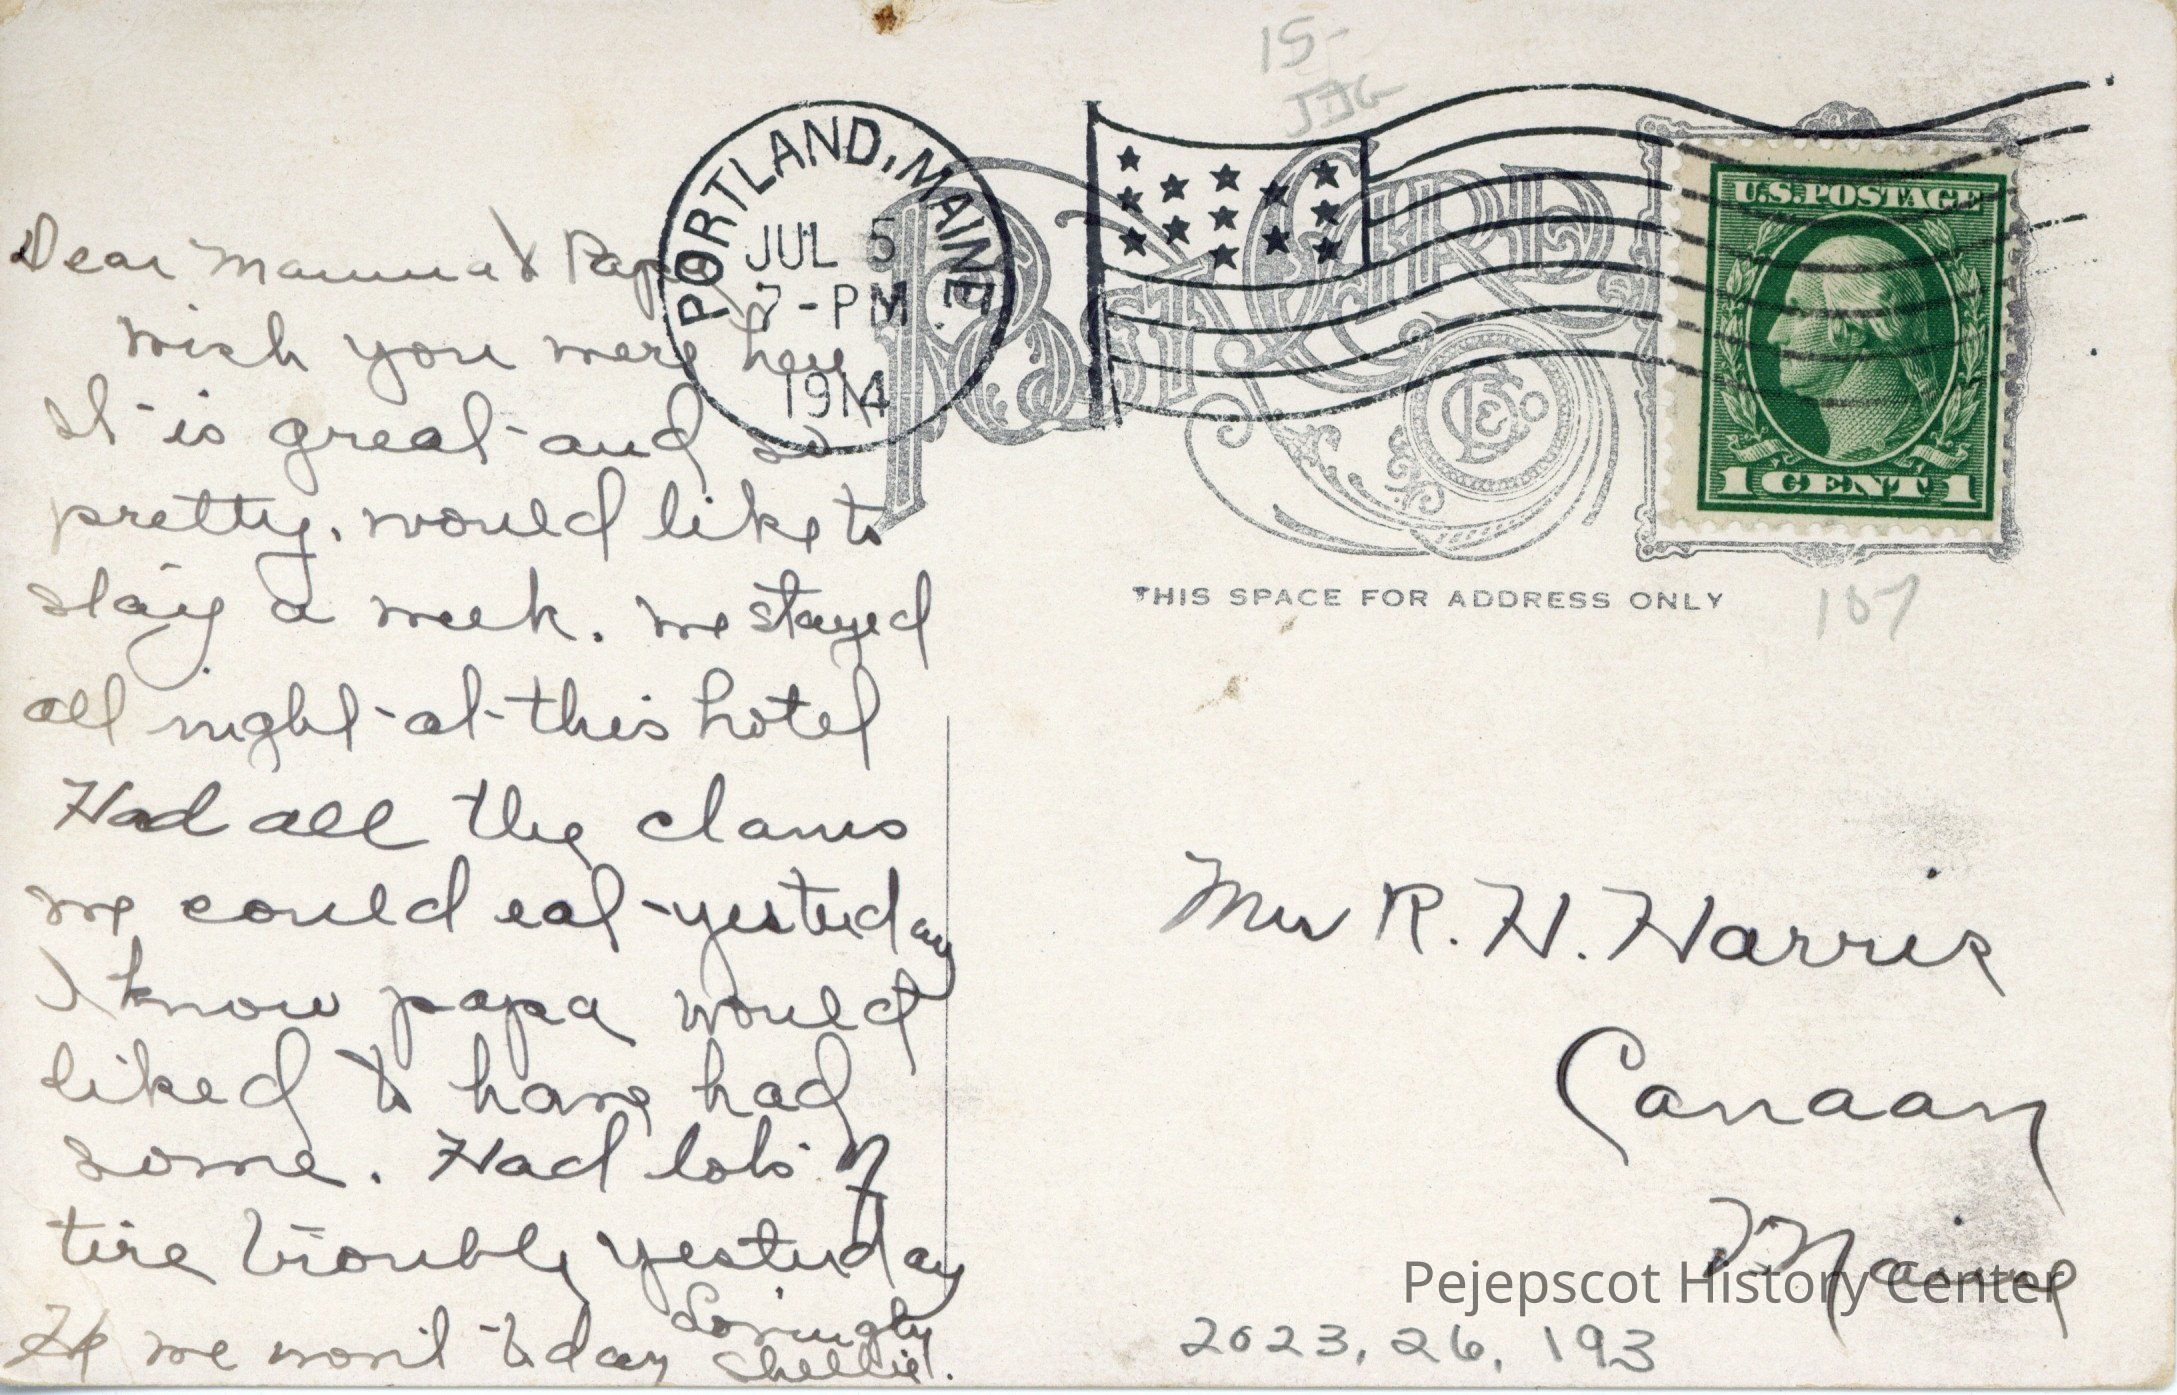 15-
JJG
PORTLAND, MAINE
JUL 5
7-PM
1914
POST CARD
U.S. POSTAGE
1 CENT 1
THIS SPACE FOR ADDRESS ONLY
107
Dear Mamma & Papa
wish you were here
It is great and so
pretty, would like to
stay a week. we stayed
all night at this hotel
Had all the clams
we could eat yesterday
I know papa would
liked to have had
some. Had lots of
tire trouble yesterday
we won't today
Lovingly
Mrs R. H. Harris
Canaan
Maine
Pejepscot History Center
2023.26.193